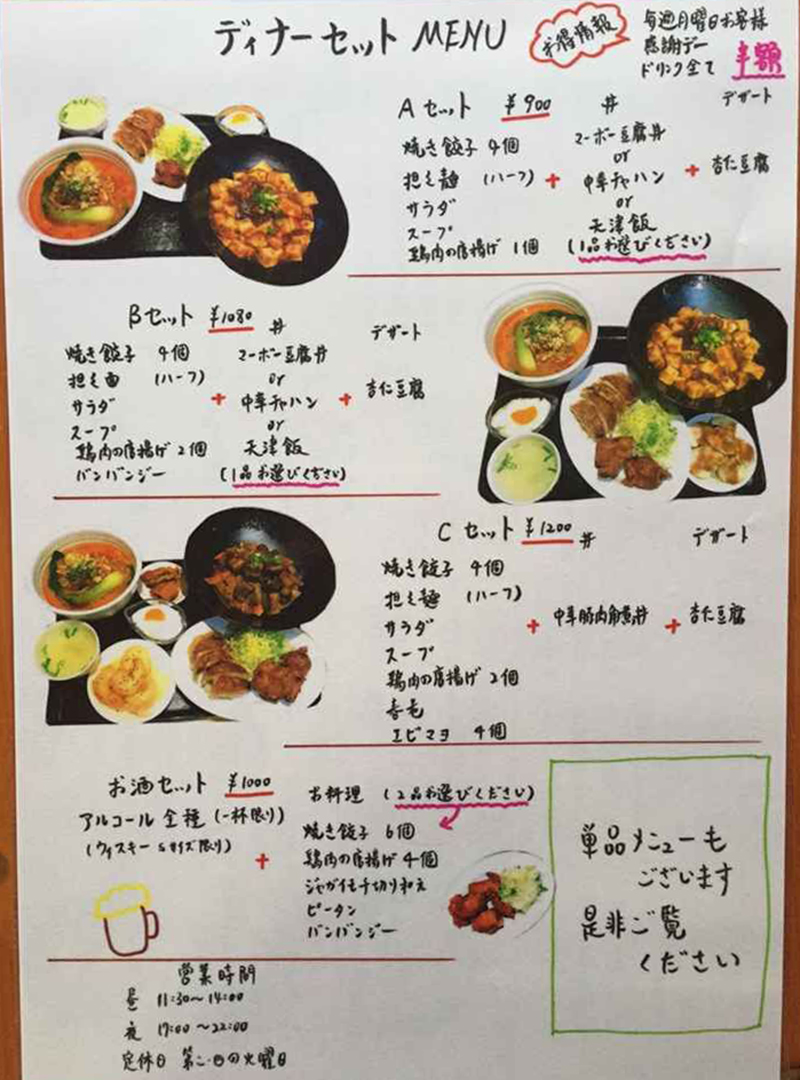 ディナーセット MENU
お得情報
毎週月曜日お客様
感謝デー
ドリンク全て 半額
Aセット ¥900 丼 デザート
焼き餃子 4個
担々麺 (ハーフ)
サラダ
スープ
鶏肉の唐揚げ 1個
+
マーボー豆腐丼
or
中華チャハン
or
天津飯
(1品お選びください)
+
杏仁豆腐
Bセット ¥1080 丼 デザート
焼き餃子 4個
担々面 (ハーフ)
サラダ
スープ
鶏肉の唐揚げ 2個
バンバンジー
+
マーボー豆腐丼
or
中華チャハン
or
天津飯
(1品お選びください)
+
杏仁豆腐
Cセット ¥1200 丼 デザート
焼き餃子 4個
担々麺 (ハーフ)
サラダ
スープ
鶏肉の唐揚げ 2個
エビマヨ 4個
+
中華豚肉角煮丼
+
杏仁豆腐
お酒セット ¥1000
アルコール全種 (一杯限り)
(ウィスキー Sサイズ限り)
+
お料理 (2品お選びください)
焼き餃子 6個
鶏肉の唐揚げ 4個
ジャガイモ千切り和え
ピータン
バンバンジー
単品メニューも
ございます
是非ご覧
ください
営業時間
昼 11:30〜14:00
夜 17:00〜22:00
定休日 の火曜日